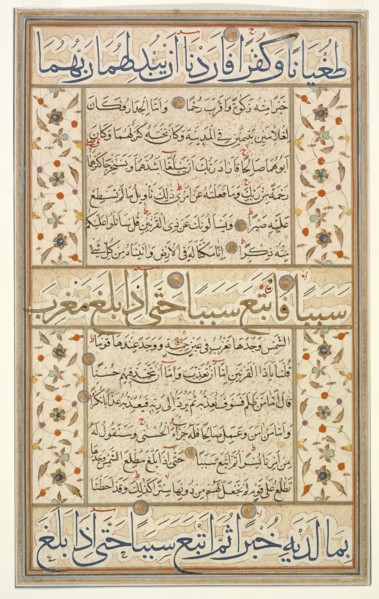 طغيانا وكفرا فاردنا ان يبدلهما ربهما
خيرا منه زكوة واقرب رحما واما الجدار فكان
لغلامين يتيمين في المدينة وكان تحته كنز لهما وكان
ابوهما صالحا فاراد ربك ان يبلغا اشدهما ويستخرجا كنزهما
رحمة من ربك وما فعلته عن امري ذلك تاويل ما لم تسطع
عليه صبرا ويسالونك عن ذي القرنين قل ساتلوا عليكم
منه ذكرا انا مكنا له في الارض واتيناه من كل شيء
سببا فاتبع سببا حتى اذا بلغ مغرب
الشمس وجدها تغرب في عين حمئة ووجد عندها قوما
قلنا ياذا القرنين اما ان تعذب واما ان تتخذ فيهم حسنا
قال اما من ظلم فسوف نعذبه ثم يرد الى ربه فيعذبه عذابا نكرا
واما من امن وعمل صالحا فله جزاء الحسنى وسنقول له
من امرنا يسرا ثم اتبع سببا حتى اذا بلغ مطلع الشمس وجدها
تطلع على قوم لم نجعل لهم من دونها سترا كذلك وقد احطنا
بما لديه خبرا ثم اتبع سببا حتى اذا بلغ